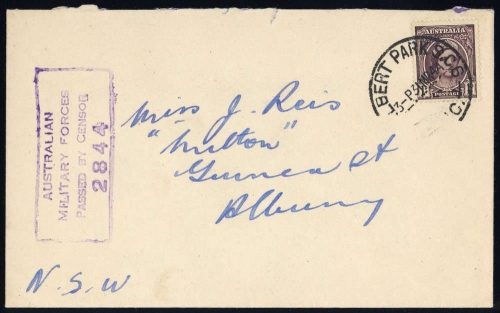 AUSTRALIAN
MILITARY FORCES
PASSED BY CENSOR
2844
AUSTRALIA
POSTAGE
BERT PARK
Miss J. Reis
"Milton"
Guinea St
Albury
N.S.W